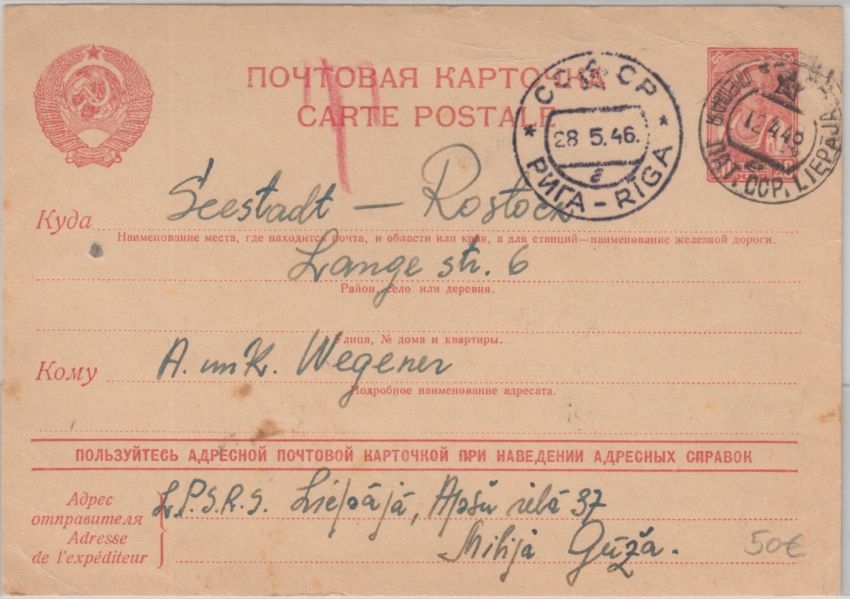 ПОЧТОВАЯ КАРТОЧКА
CARTE POSTALE
СССР
28 5.46.
а
РИГА - RĪGA
12 4 46
ЛАТ. ССР. LIEPĀJA
Куда Seestadt — Rostock
Наименование места, где находится почта, и области или края, а для станций—наименование железной дороги.
Lange str. 6
Район, село или деревня.
Улица, № дома и квартиры.
Кому A. un K. Wegener
Подробное наименование адресата.
ПОЛЬЗУЙТЕСЬ АДРЕСНОЙ ПОЧТОВОЙ КАРТОЧКОЙ ПРИ НАВЕДЕНИИ АДРЕСНЫХ СПРАВОК
Адрес отправителя
Adresse de l'expéditeur
L.P.S.R.S. Liepājā, Apšu ielā 37
Milija Gūža.
50€